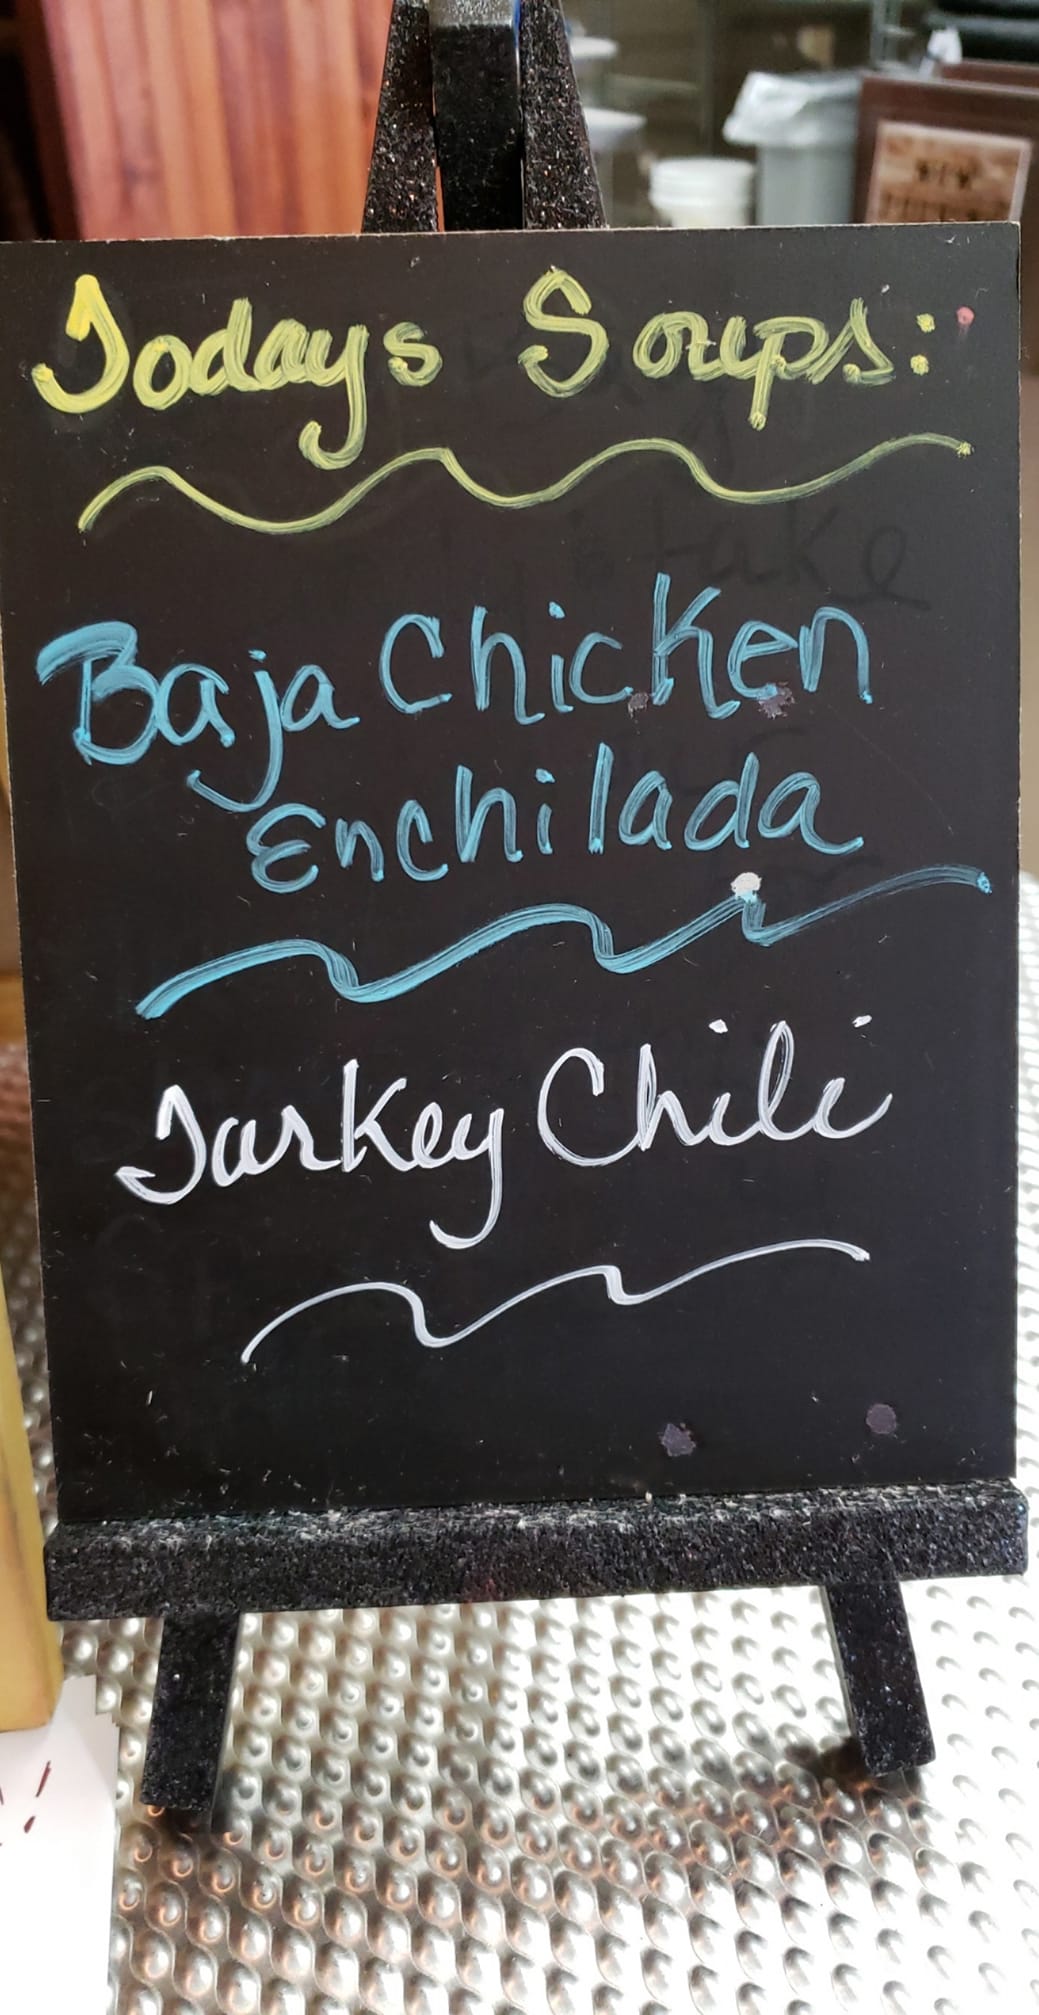 Todays Soups:
Baja Chicken
Enchilada
Turkey Chili
take